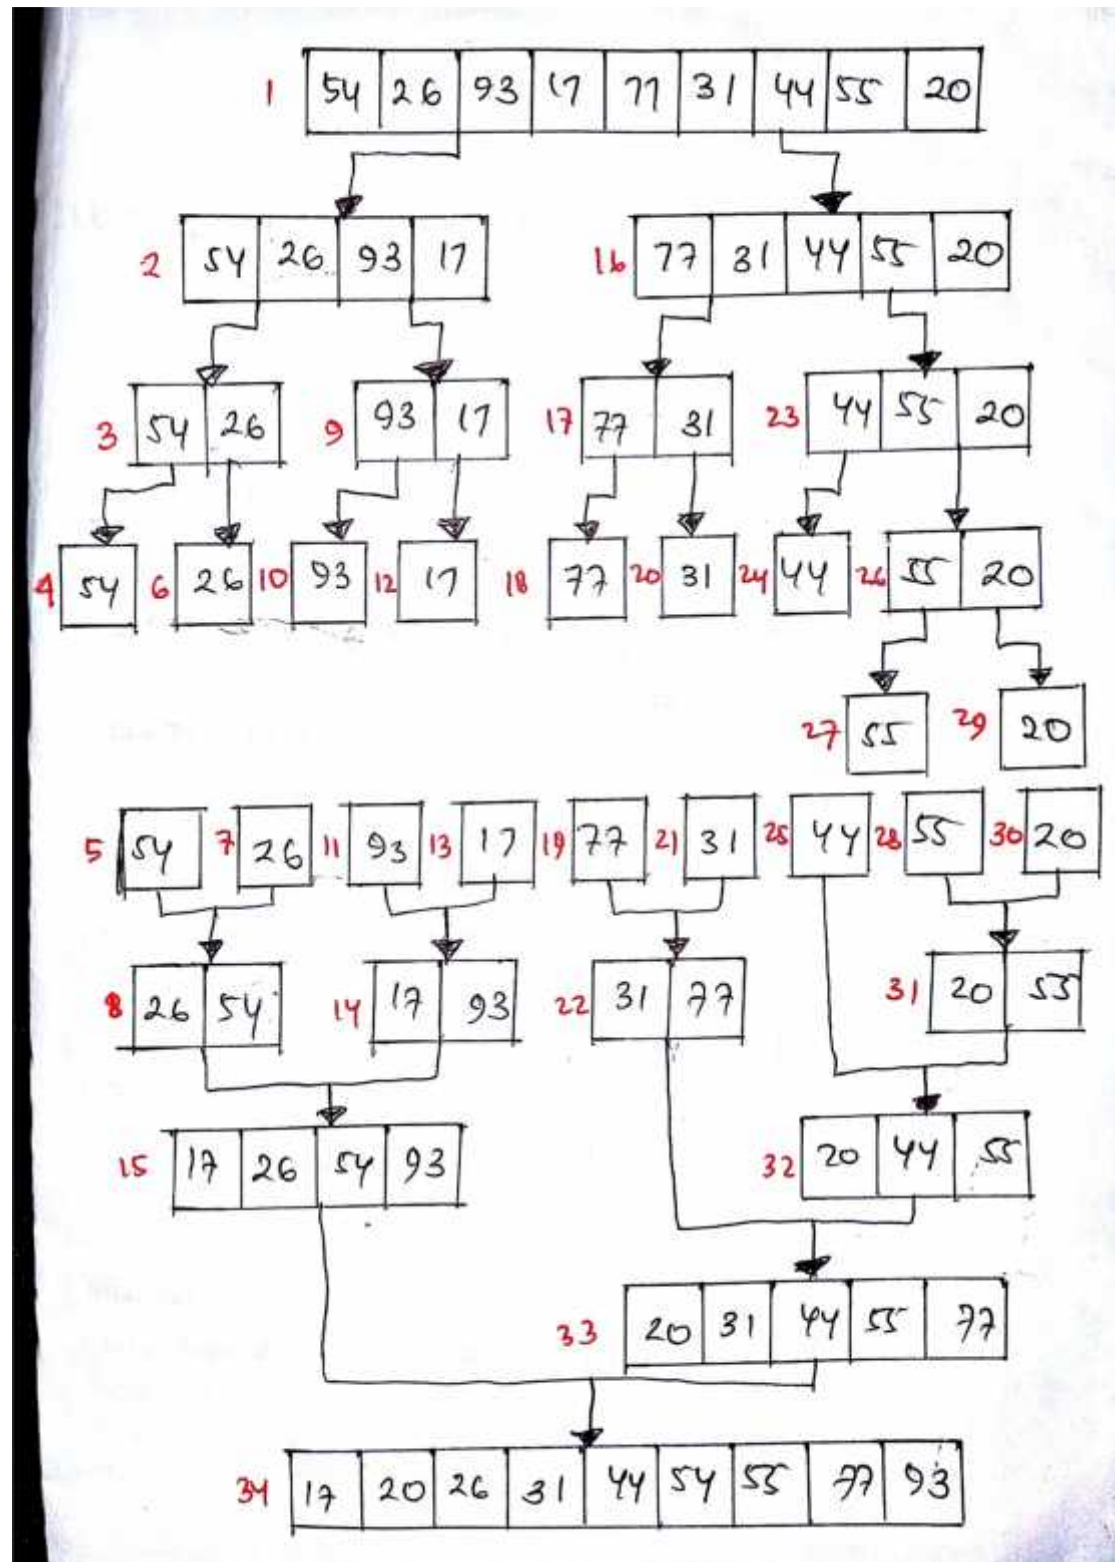 1 54 26 93 17 77 31 44 55 20
2 54 26 93 17 16 77 31 44 55 20
3 54 26 9 93 17 17 77 31 23 44 55 20
4 54 6 26 10 93 12 17 18 77 20 31 24 44 26 55 20
27 55 29 20
5 54 7 26 11 93 13 17 19 77 21 31 25 44 28 55 30 20
8 26 54 14 17 93 22 31 77 31 20 55
15 17 26 54 93 32 20 44 55
33 20 31 44 55 77
34 17 20 26 31 44 54 55 77 93